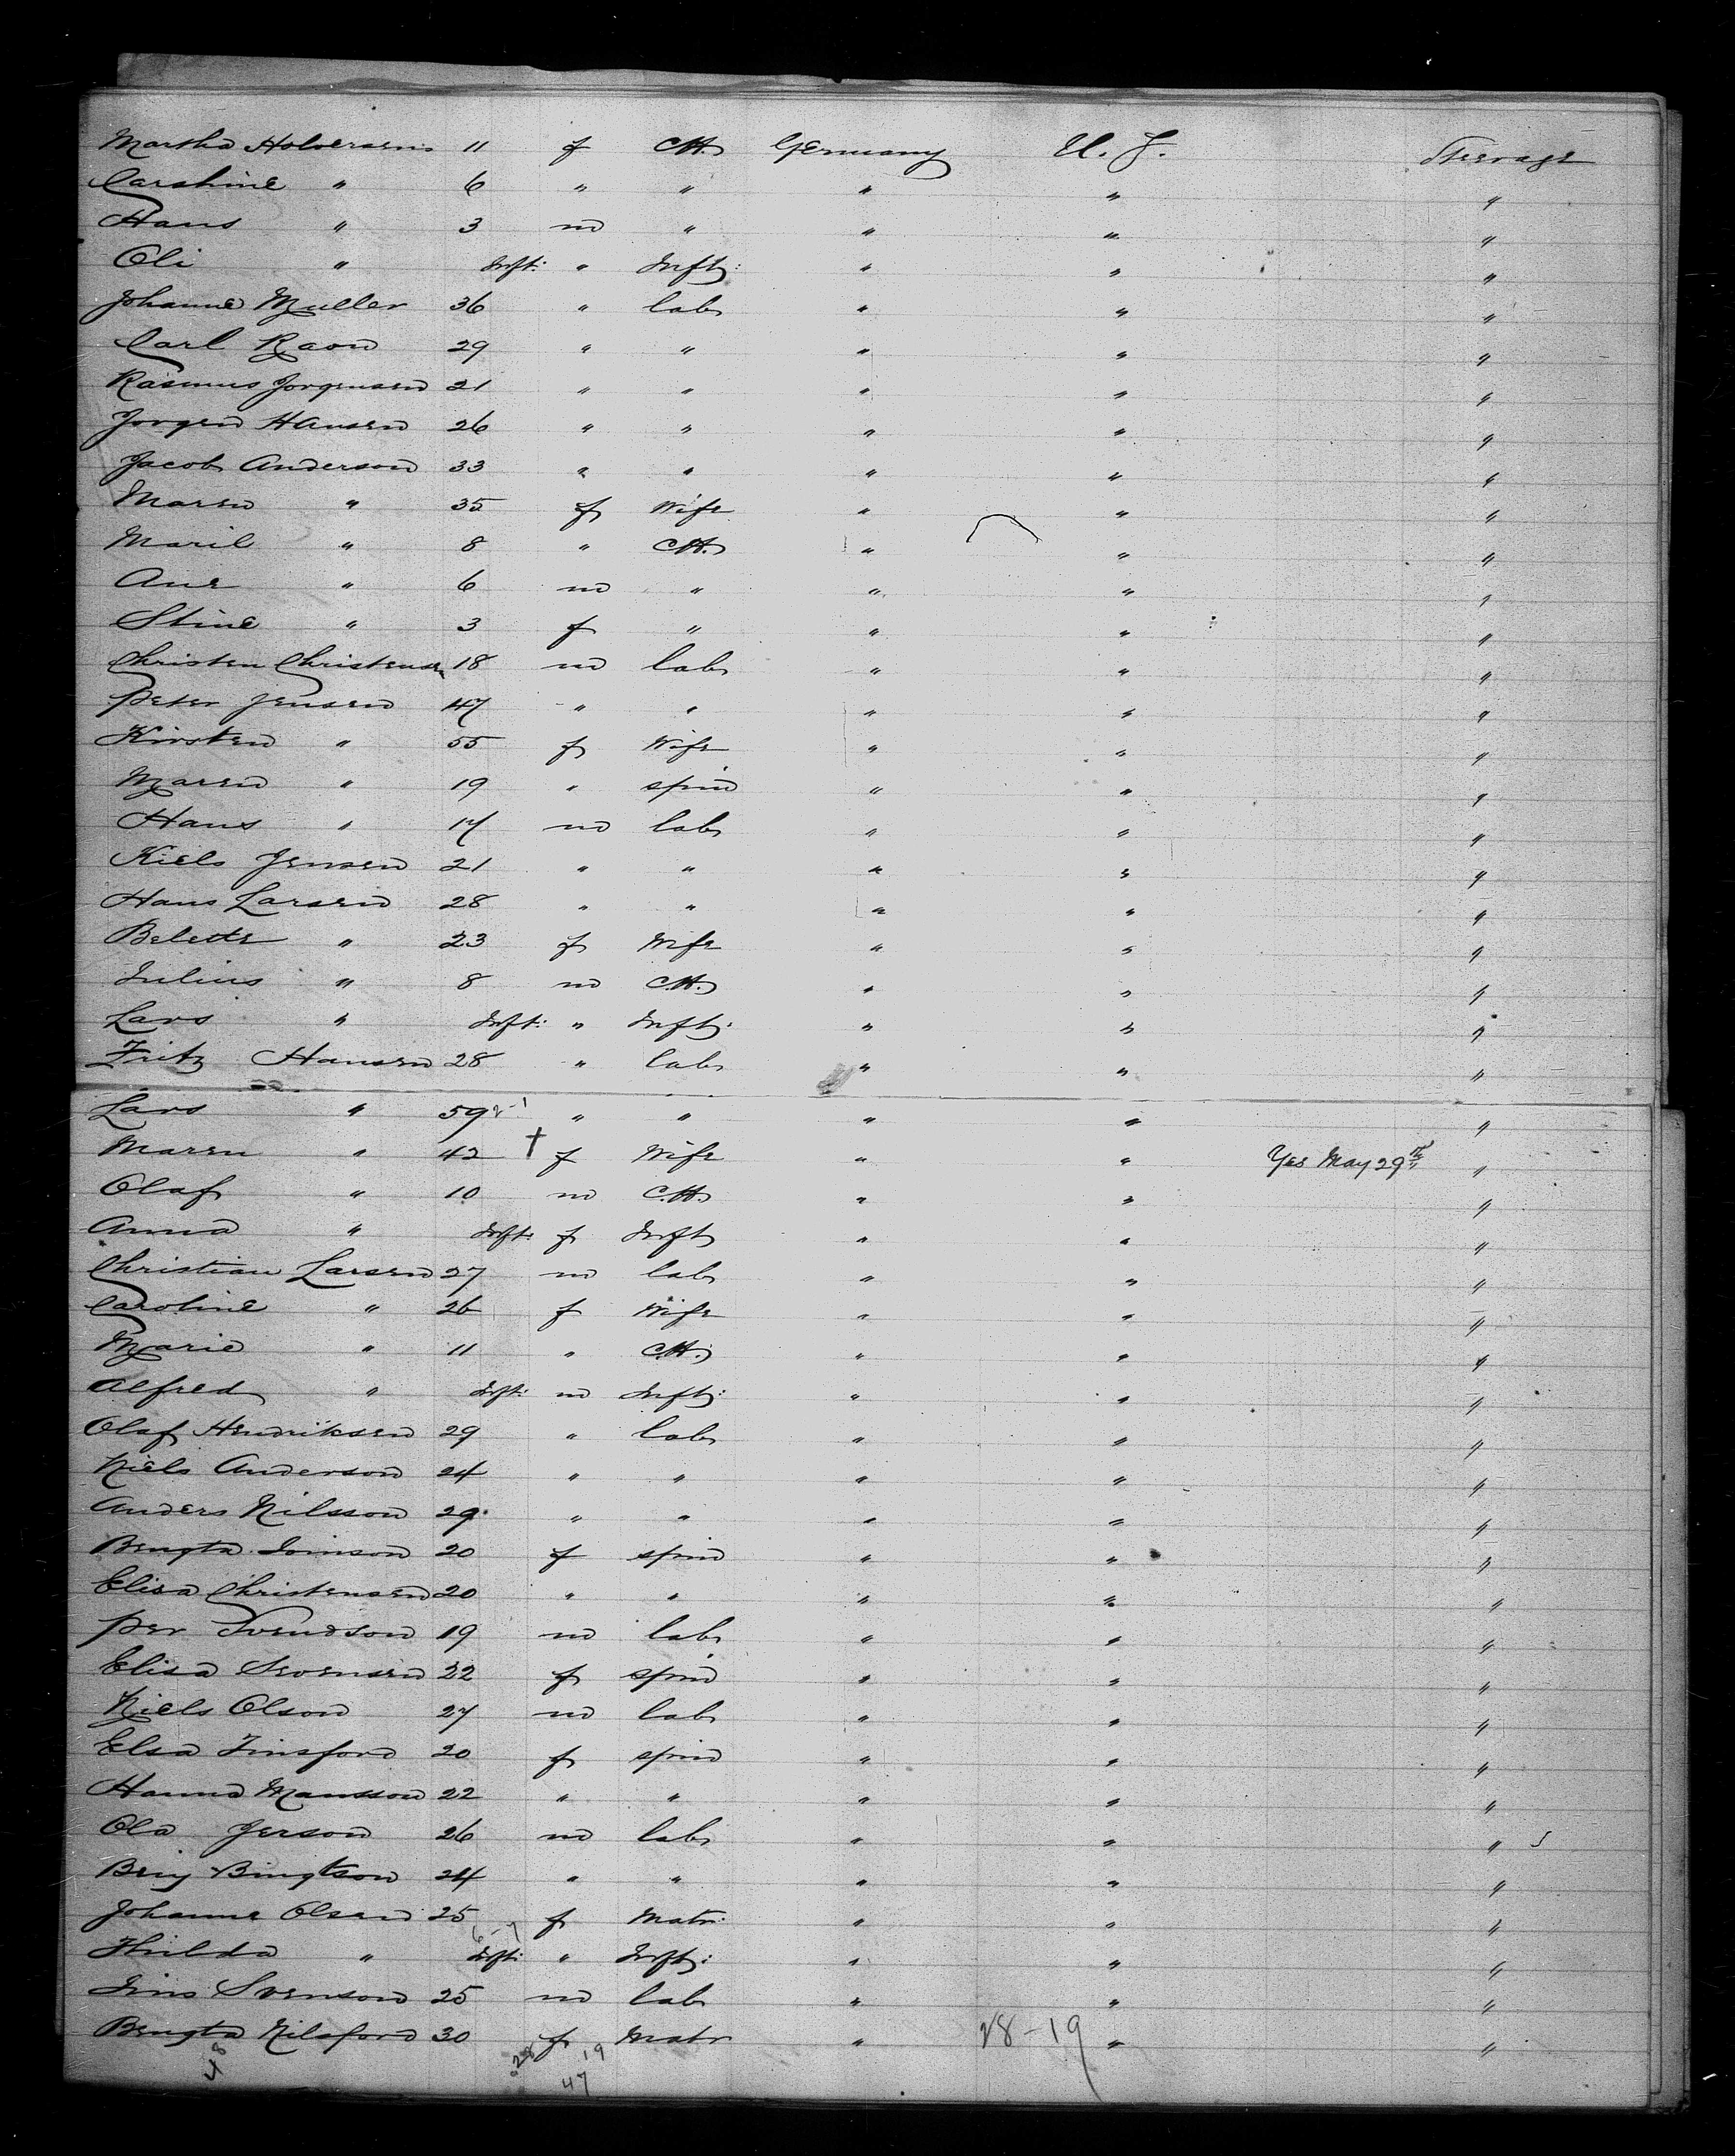 Martha Holversen 11 f Ch. Germany U. S. Steerage
Carshine " 6 " " " " "
Hans " 3 m " " " "
Oli " Inft: " Inft: " " "
Johanne Muller 36 " lab " " "
Carl Raon 29 " " " " "
Rasmus Jorgensen 21 " " " " "
Jorgen Hansen 26 " " " " "
Jacob Anderson 33 " " " " "
Maren " 35 f Wife " " "
Maril " 8 " Ch. " " "
Ane " 6 m " " " "
Stine " 3 f " " " "
Christen Christensen 18 m lab " " "
Peter Jensen 47 " " " " "
Kirsten " 55 f Wife " " "
Maren " 19 " spin " " "
Hans " 17 m lab " " "
Niels Jensen 21 " " " " "
Hans Larsen 28 " " " " "
Belette " 23 f Wife " " "
Julius " 8 m Ch. " " "
Lars " Inft: " Inft: " " "
Fritz Hansen 28 " lab " " "
Lars " 59 " " " " "
Maren " 42 † f Wife " " Yes May 29th "
Olaf " 10 m Ch. " " "
Anna " Inft: f Inft " " "
Christian Larsen 27 m lab " " "
Caroline " 26 f Wife " " "
Marie " 11 " Ch. " " "
Alfred " Inft: m Inft: " " "
Olaf Hendriksen 29 " lab " " "
Niels Anderson 24 " " " " "
Anders Nilsson 29 " " " " "
Bengta 20 f spin " " "
Elisa Christensen 20 " " " " "
Per Svendson 19 m lab " " "
Elisa Svensen 22 f spin " " "
Niels Olson 27 m lab " " "
Elsa 20 f spin " " "
Hanna Mansson 22 " " " " "
Ola Jerson 26 m lab " " "
Beny Bingtson 24 " " " " "
Johanne Olsen 25 f Matr. " " "
Thilda " Inft: " Inft: " " "
Svenson 25 m lab " " "
Bengta Nilsford 30 f Matr " " "
28-19
48 28 19
47